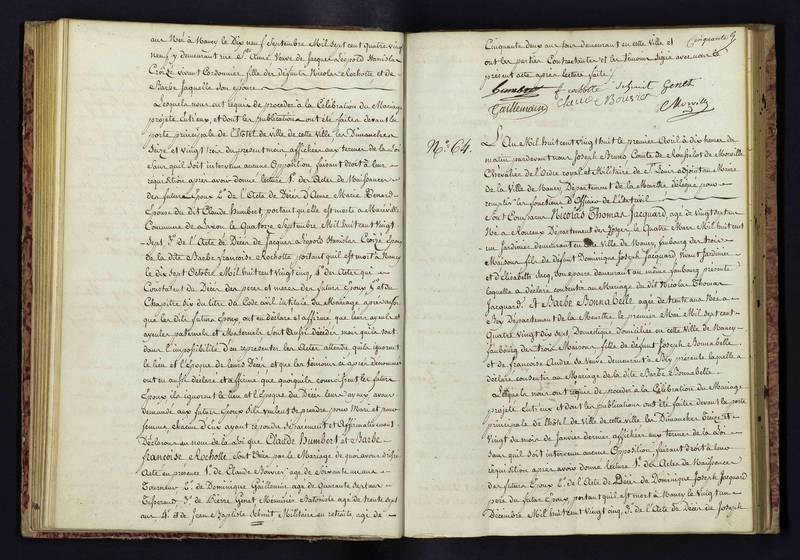 ans Née à Nancy le Dix neuf Septembre Mil sept cent quatre vingt
neuf y demeurant rue St. Etienne Veuve de Jacques Léopold Stanislas
Croizé vivant Cordonnier, fille des défunts Nicolas Rochotte et de
Barbe Jaquelle son épouse
Lesquels nous ont requis de procéder à la Célébration du Mariage
projeté entr'eux, et dont les publications ont été faites devant la
porte principale de l'hôtel de ville de cette ville les Dimanches
Seize et vingt trois du présent mois, affichées aux termes de la loi
Sans qu'il soit intervenu aucune Opposition, faisant droit à leur
réquisition après avoir donné lecture 1°. des Actes de Naissances
des futurs Epoux 2°. de l'Acte de Décès d'Anne Marie Renard
Epouse du dit Claude Humbert, portant qu'elle est morte à Maxéville
Commune de Laxou le Quatorze Septembre Mil huit cent Vingt
Sept, 3°. de l'Acte de Décès de Jacques Léopold Stanislas Croizé Epoux
de la dite Barbe Françoise Rochotte portant qu'il est mort à Nancy
le dix Sept Octobre Mil huit cent Vingt cinq, 4°. des Actes qui
Constatent du Décès des pères et mères des futurs Epoux 5°. et du
Chapitre Six du titre du Code civil intitulé du Mariage après avoir
que les dits futurs Epoux ont eu déclaré et affirmé que leurs ayeuls et
ayeules paternels et Maternels sont aussi décédés mais qu'ils sont
dans l'impossibilité d'en représenter les Actes attendu qu'ils ignorent
le lieu et l'Epoque de leurs Décès et que les témoins ci après dénommés
ont eu aussi déclaré et affirmé que quoiqu'ils connoissent les futurs
Epoux ils ignorent le lieu et l'Epoque du Décès leurs ayeux, avons
demandé aux futurs Epoux s'ils veulent se prendre pour Mari et pour
femme, chacun d'Eux ayant répondu séparément et Affirmativement
Déclarons au nom de la loi que Claude Humbert et Barbe
françoise Rochotte sont Unis par le Mariage de quoi avons dressé
Acte en présence 1°. de Claude Bouvier agé de Soixante un ans
Tourneur 2°. de Dominique Taillemain agé de Quarante Sept ans
Tisserand 3°. de Pierre Genet Menuisier Batoniste agé de trente Sept
ans 4°. et de Jean Baptiste Schmit Militaire en retraite, agé de
Cinquante 9
Cinquante deux ans tous demeurant en cette Ville et
ont les parties Contractantes et les témoins Signé avec nous le
présent acte après lecture faite
Humbert f rochotte Schmit Genet
Taillemain Bouvier
Morville
N°. 64.
L'An Mil huit cent vingt huit le premier Avril à dix heures du
matin pardevant nous Joseph Bruno, Comte de Morville
Chevalier de l'Ordre royal et Militaire de St. Louis adjoint au Maire
de la Ville de Nancy Département de la Meurthe délégué pour
remplir les fonctions d'Officier de l'Etat civil
Sont Comparus Nicolas Thomas Jacquard agé de Vingt sept ans
Né à Département des Vosges le Quatre Mars Mil huit cent
un Jardinier demeurant en cette Ville de Nancy, faubourg des trois
Maisons fils de défunt Dominique Joseph Jacquard, vivant Jardinier
et d'Elisabeth son épouse demeurant au même faubourg présente
laquelle a déclaré consentir au Mariage du dit Nicolas Thomas
Jacquard Et Barbe Bonnabelle agée de trente ans Née à
Département de la Meurthe le premier Mai Mil sept cent
Quatre Vingt dix sept, Domestique domiciliée en cette Ville de Nancy
faubourg des trois Maisons fille de défunt Joseph Bonnabelle
et de françoise André sa Veuve demeurant à présente laquelle a
déclaré consentir au Mariage de la dite Barbe Bonnabelle
Lesquels nous ont requis de procéder à la Célébration du Mariage
projeté Entr'eux et dont les publications ont été faites devant la porte
principale de l'hôtel de Ville de cette ville les Dimanches Treize et
Vingt du mois de Janvier dernier affichées aux termes de la loi
Sans qu'il soit intervenu aucune Opposition faisant droit à leur
réquisition après avoir donné lecture 1°. des Actes de Naissances
des futurs Epoux 2°. de l'Acte de Décès de Dominique Joseph Jacquard
père du futur Epoux portant qu'il est mort à Nancy le Vingt un
Décembre Mil huit cent Vingt cinq, 3°. de l'Acte de Décès de Joseph